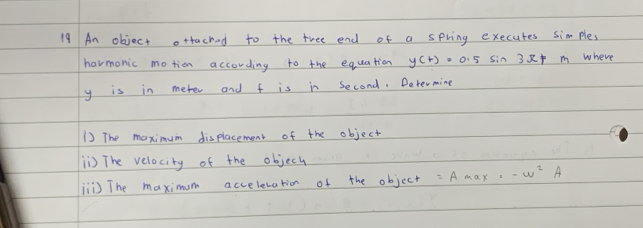 19 An object attached to the free end of a spring executes simples
harmonic motion according to the equation y(t) = 0.5 sin 3πt m where
y is in meter and t is in second. Determine
i) The maximum displacement of the object
ii) The velocity of the object
iii) The maximum acceleration of the object = A max = -w² A